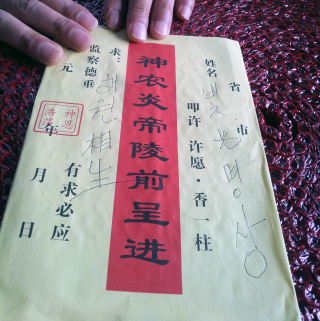 省 市
姓名 叩许 许愿·香一柱
神农炎帝陵前呈进
求: 해원 相生
监察德垂 有求必应
元 年 月 日
神恩